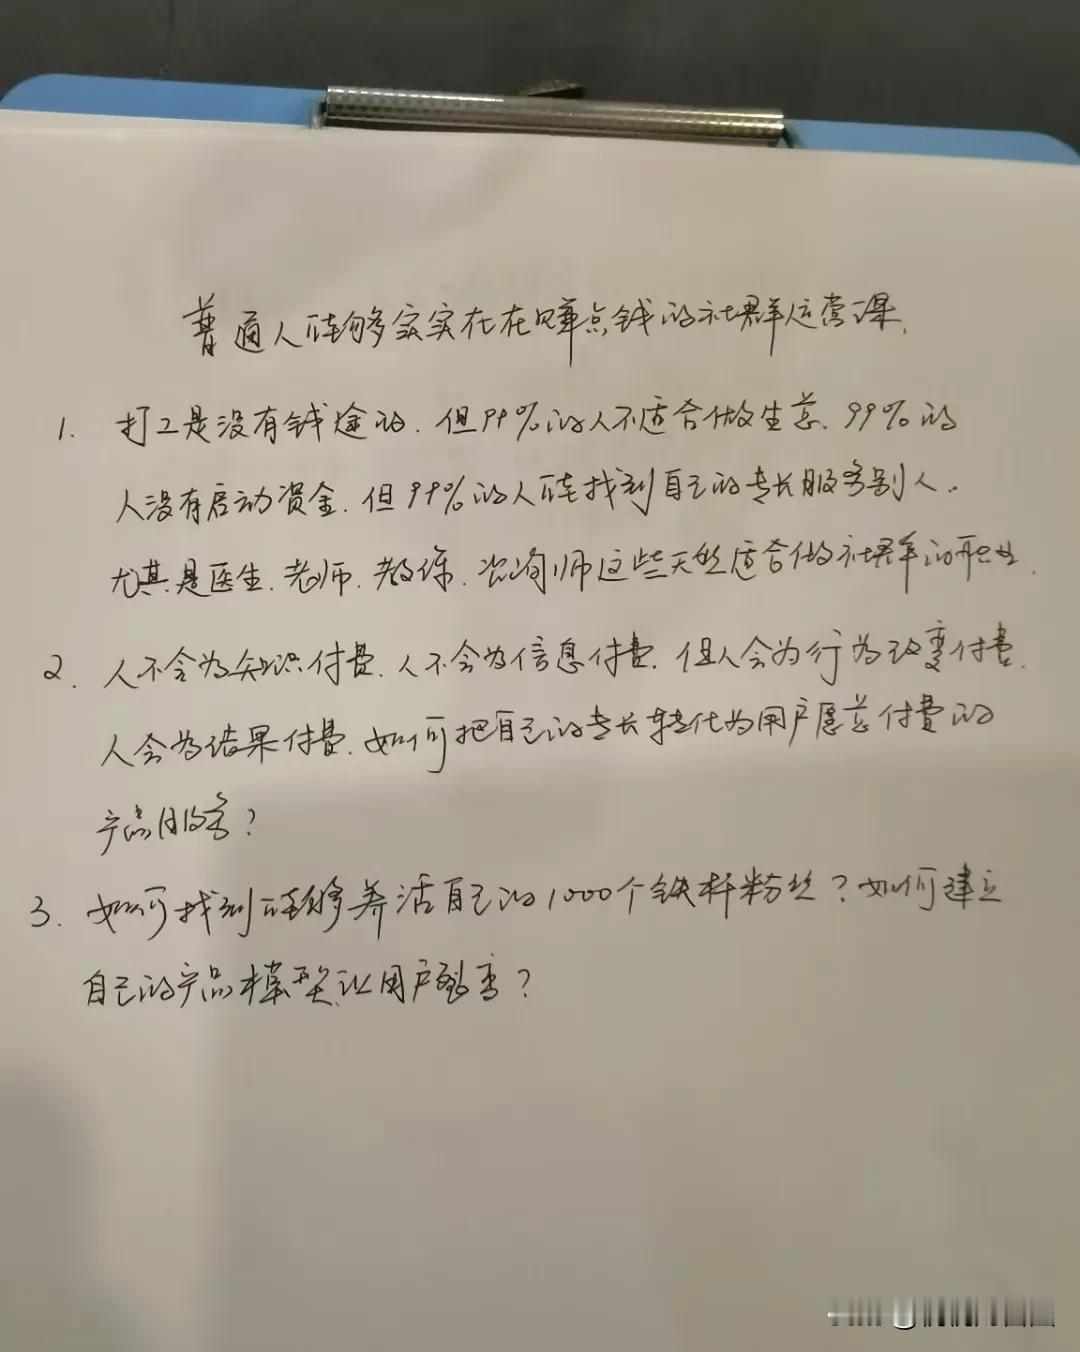 普通人能够实实在在赚点钱的社群运营课.
1. 打工是没有钱途的.但99%的人不适合做生意.99%的
人没有启动资金.但99%的人能找到自己的专长服务别人.
尤其是医生.老师.教练.咨询师这些天然适合做社群的职业.
2. 人不会为知识付费.人不会为信息付费.但人会为行为改变付费.
人会为结果付费.如何把自己的专长转化为用户愿意付费的
产品服务?
3. 如何找到能够养活自己的1000个铁杆粉丝?如何建立
自己的产品模型让用户裂变?